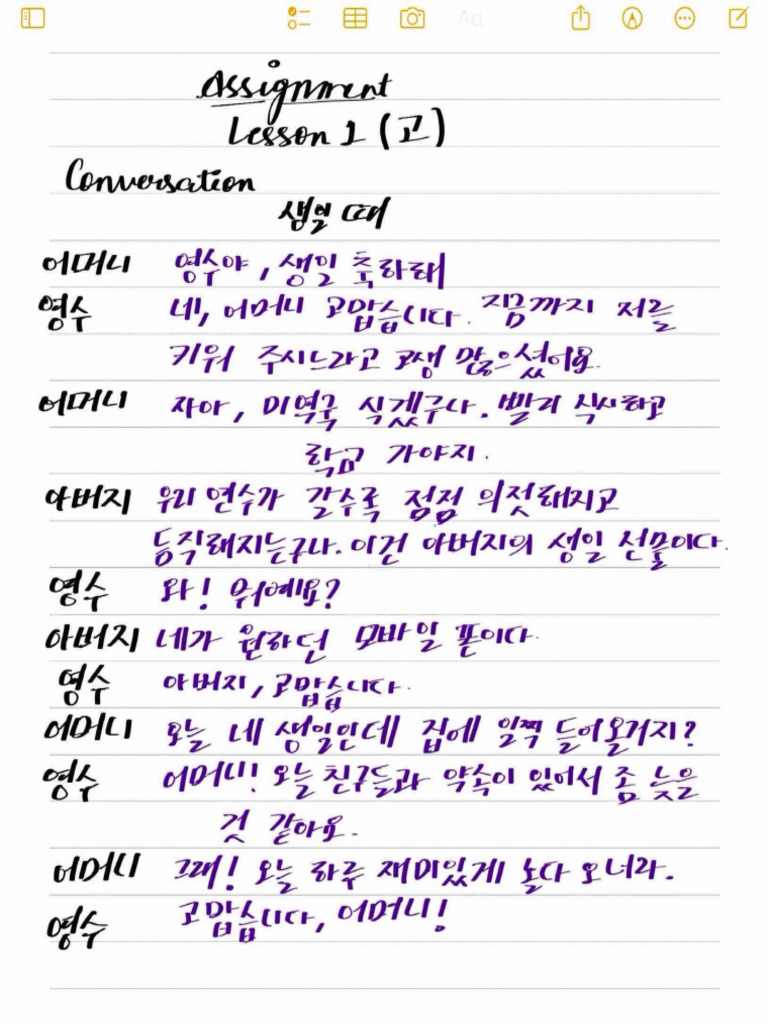 Aa
Assignment
Lesson 1 (고)
Conversation
생일 때
어머니 영수야, 생일 축하해
영수 네, 어머니 고맙습니다. 지금까지 저를
키워 주시느라고 고생 많으셨어요.
어머니 자아, 미역국 식겠구나. 빨리 식사하고
학교 가야지.
아버지 우리 연수가 갈수록 점점 의젓해지고
듬직해지는구나. 이건 아버지의 생일 선물이다.
영수 와! 뭐예요?
아버지 네가 원하던 모바일 폰이다.
영수 아버지, 고맙습니다.
어머니 오늘 네 생일인데 집에 일찍 들어올거지?
영수 어머니! 오늘 친구들과 약속이 있어서 좀 늦을
것 같아요.
어머니 그래! 오늘 하루 재미있게 놀다 오너라.
영수 고맙습니다, 어머니!